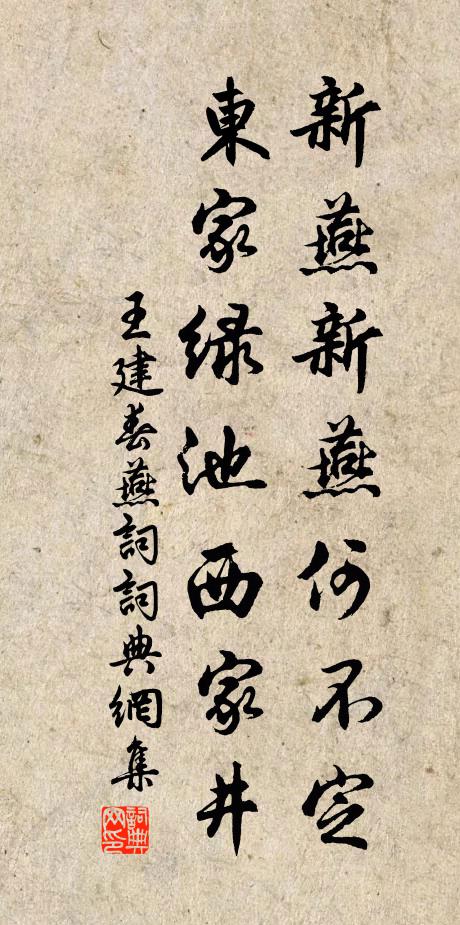 新燕新燕何不定
東家綠池西家井
王建春燕詞詞典網集
詞典网印